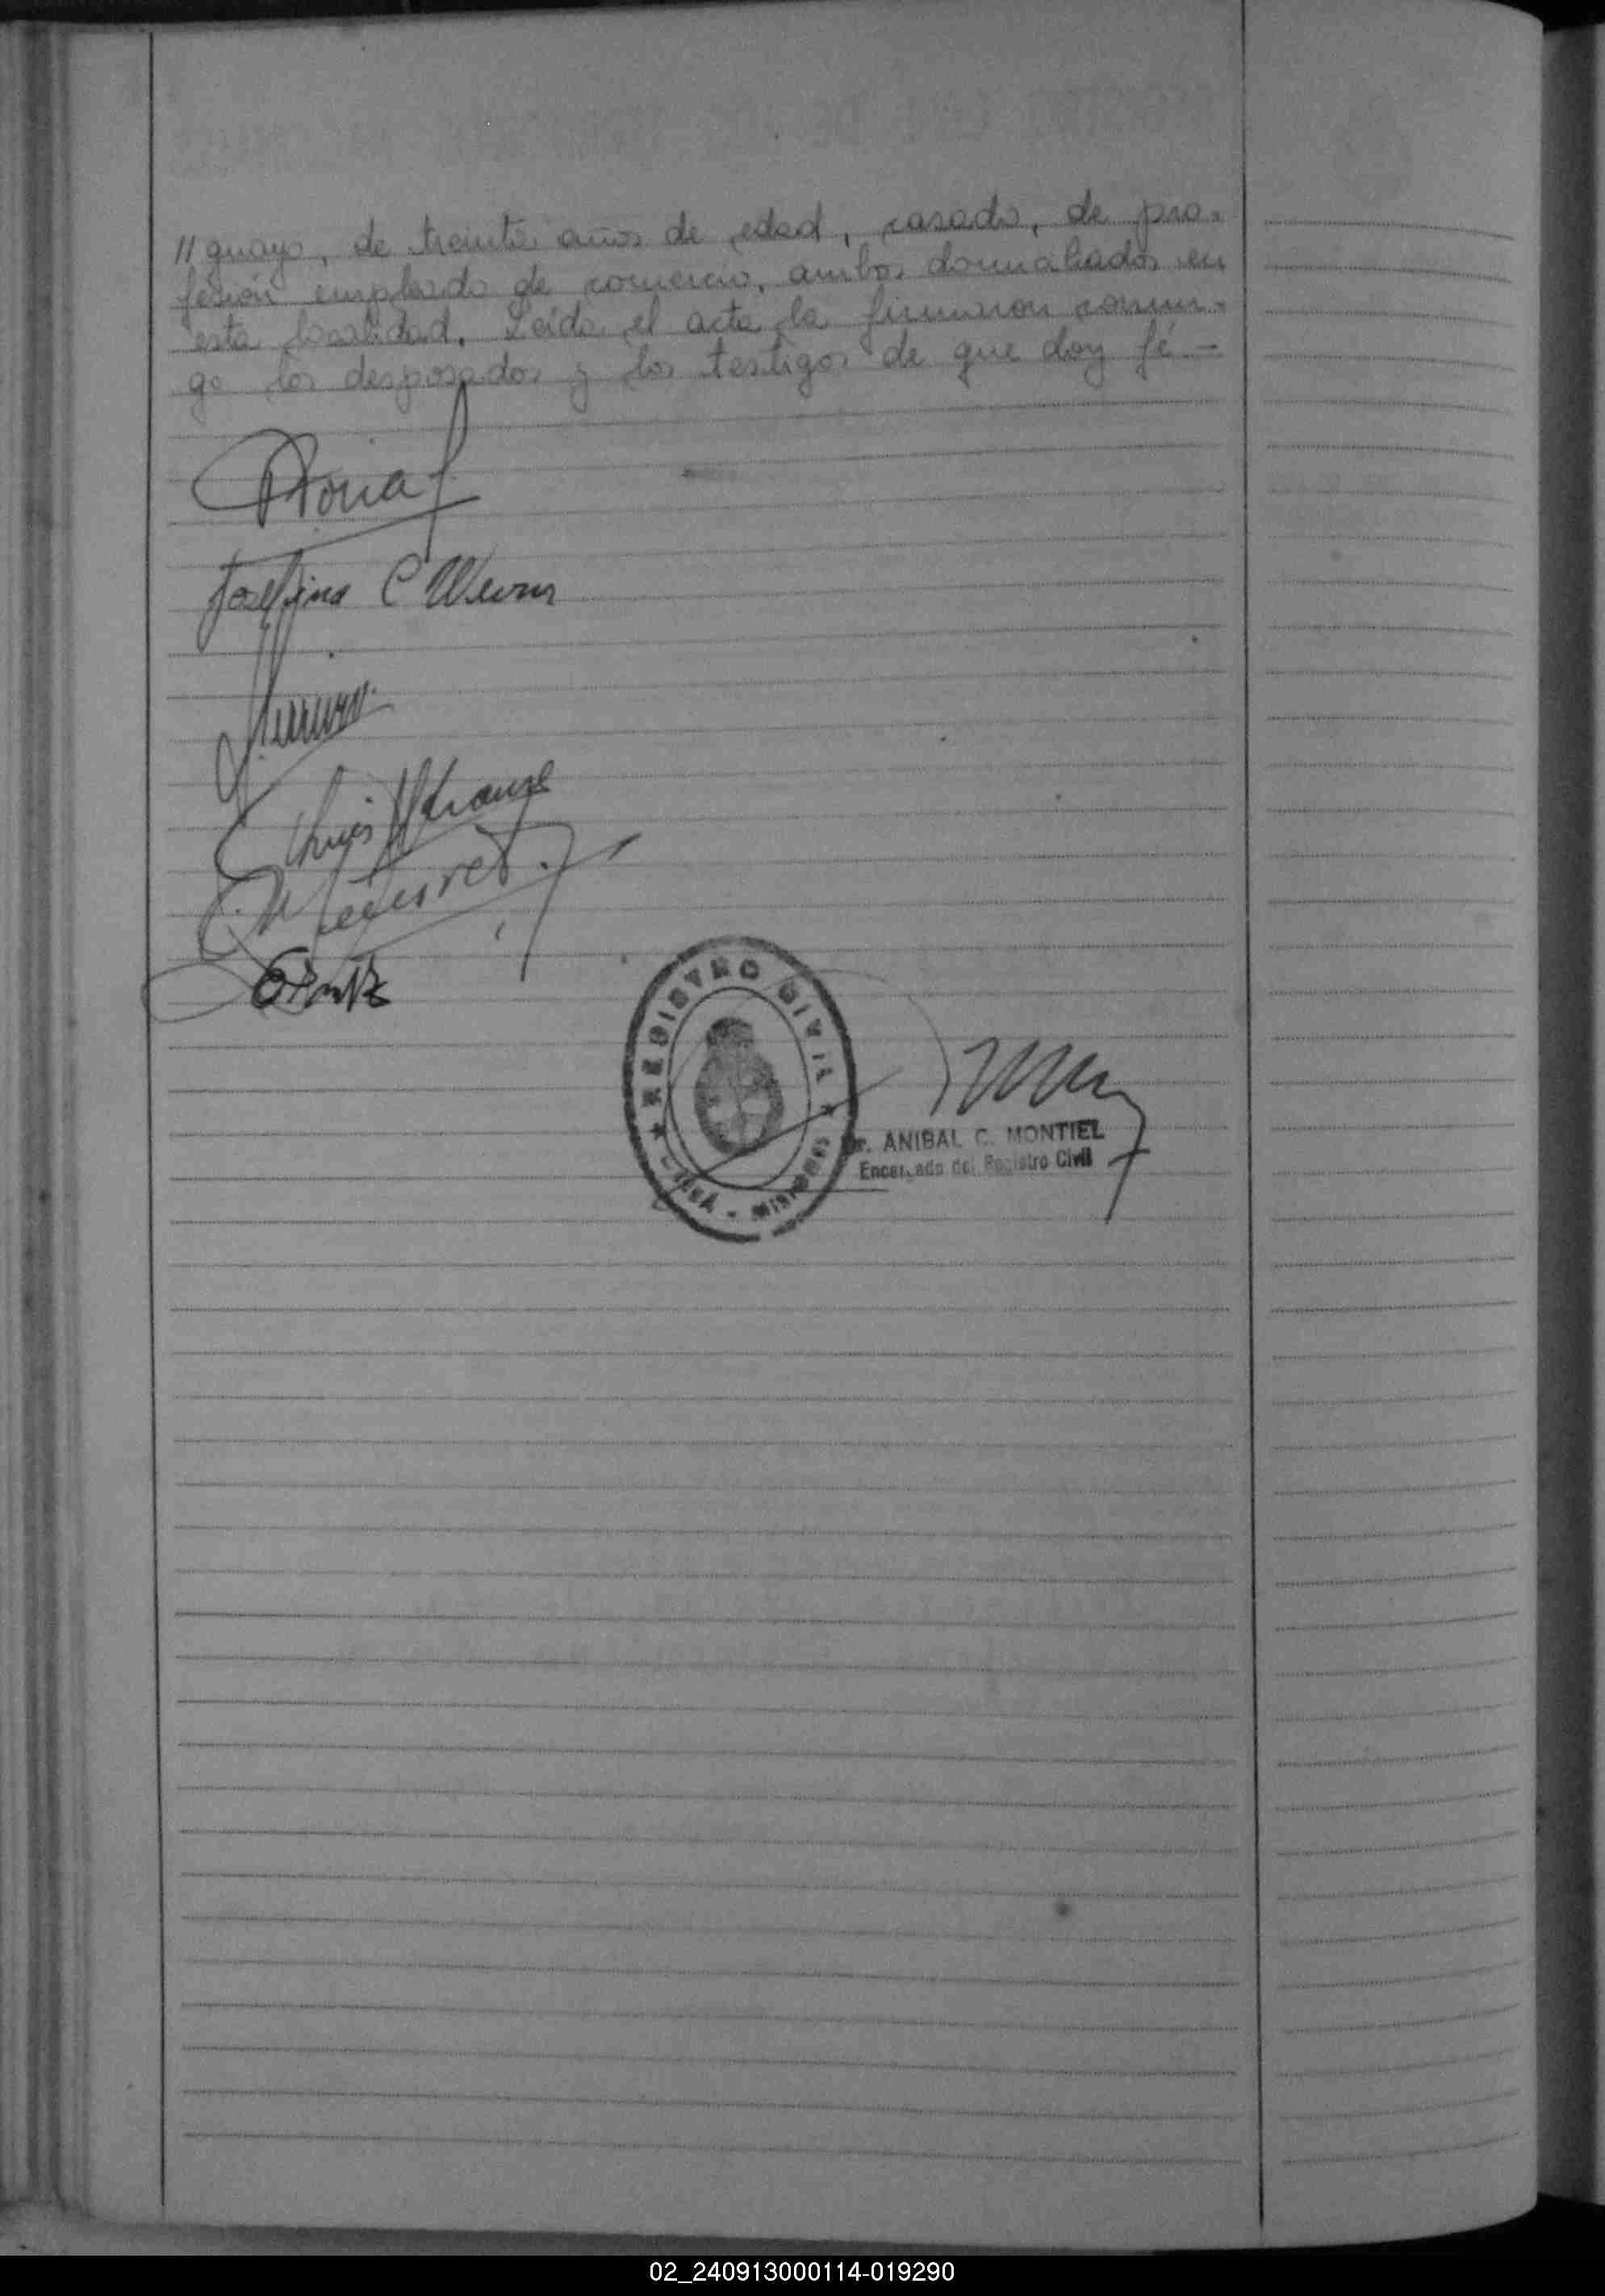 // guayo, de treinta años de edad, casado, de pro-
fesión empleado de comercio, ambos domiciliados en
esta localidad. Leída el acta la firmaron conmi-
go los desposados y los testigos de que doy fé —
Josefina C
Luis Krause
REGISTRO CIVIL
MISIONES
Dr. ANIBAL C. MONTIEL
Encargado del Registro Civil
02_240913000114-019290